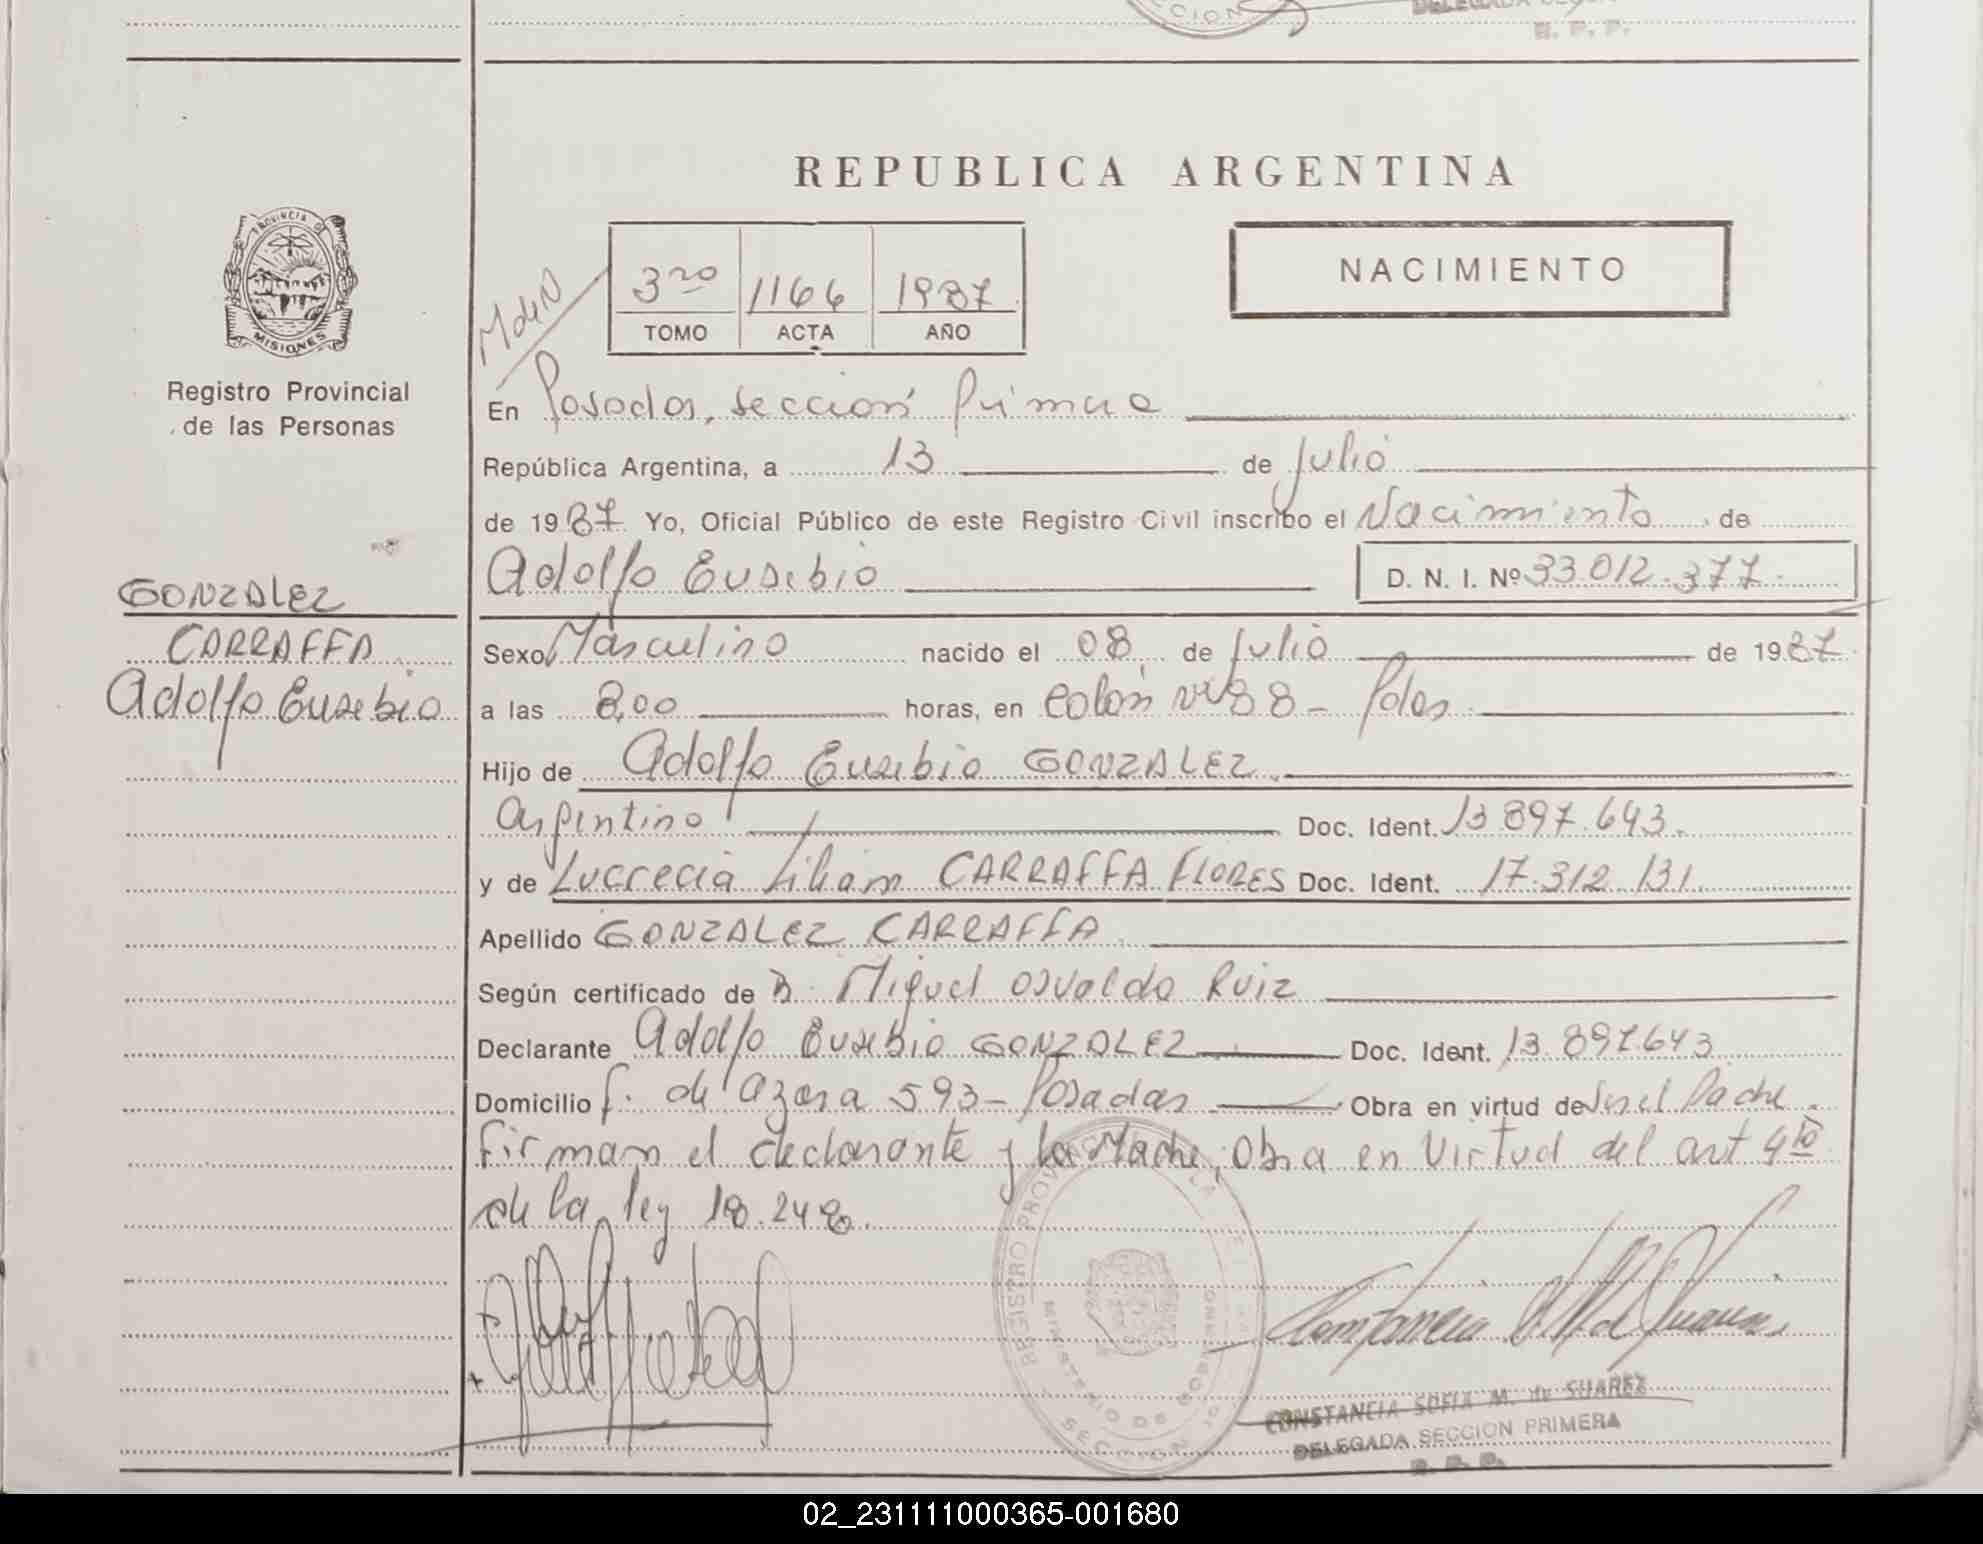 DELEGADA
R. P. P.
REPUBLICA ARGENTINA
PROVINCIA
MISIONES
Registro Provincial
de las Personas
NACIMIENTO
3ro 1166 1987
TOMO ACTA AÑO
En Posadas, Sección Primera
República Argentina, a 13 de Julio
de 1987 Yo, Oficial Público de este Registro Civil inscribo el Nacimiento de
Adolfo Eusebio D. N. I. Nº 33.012.377.
GONZALEZ
CARRAFFA
Adolfo Eusebio
Sexo Masculino nacido el 08 de Julio de 1987
a las 8,00 horas, en Colón Nº 88 - Pdas
Hijo de Adolfo Eusebio GONZALEZ
Argentino Doc. Ident. 13.897.643.
y de Lucrecia Lilian CARRAFFA FLORES Doc. Ident. 17.312.131.
Apellido GONZALEZ CARRAFFA
Según certificado de Miguel Osvaldo Ruiz
Declarante Adolfo Eusebio GONZALEZ Doc. Ident. 13.897.643
Domicilio F. de Azara 593 - Posadas Obra en virtud de Ser el Padre.
Firman el declarante y la Madre, Obra en Virtud del art 4to
de la ley 18.248.
REGISTRO PROVINCIAL
MINISTERIO DE GOBIERNO
SECCION 1º
CONSTANCIA SOFIA M. de SUAREZ
DELEGADA SECCION PRIMERA
R. P. P.
02_231111000365-001680